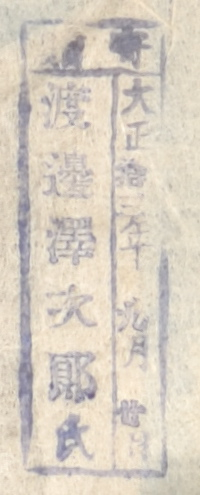 寄贈
大正拾三年 九月 廿日
渡邊澤次郎氏